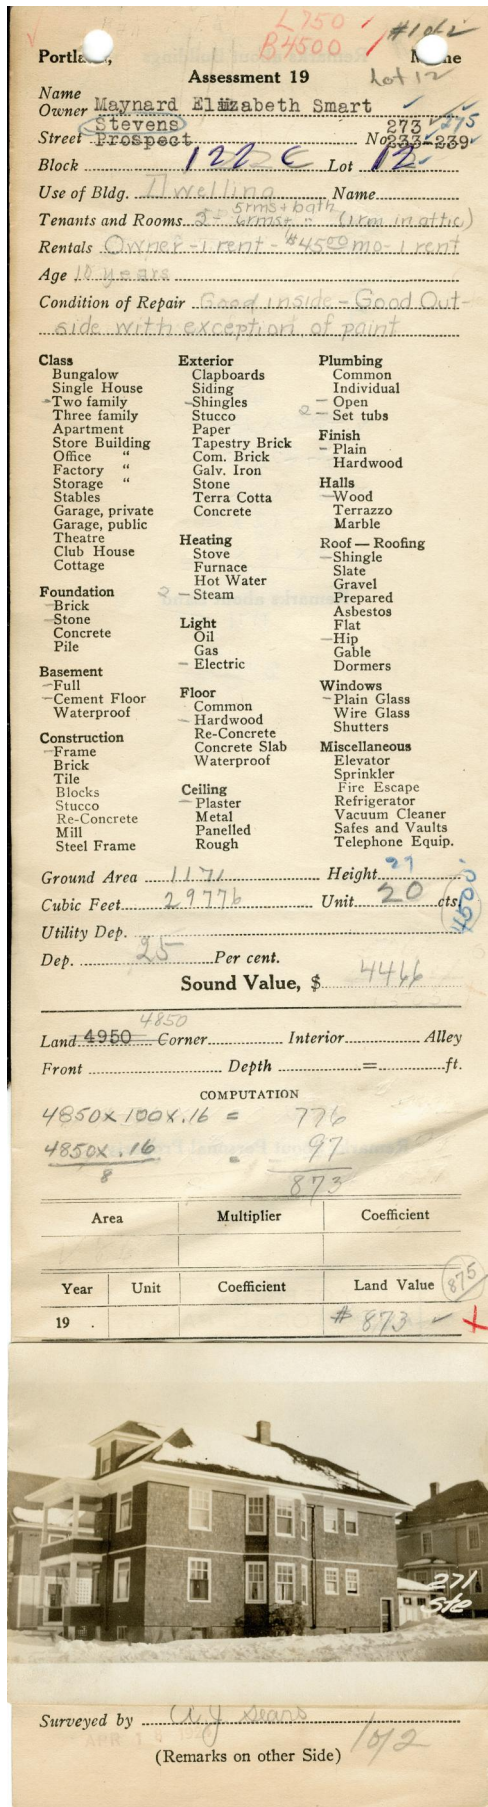 L750
B4500
#1 of 2
Portland, Maine
Assessment 19
Lot 12
Name
Owner Maynard Elizabeth Smart
Stevens 273 275
Street Prospect No 233-239
Block 122 C Lot 12
Use of Bldg. Dwelling Name
5rms + bath
Tenants and Rooms 2- 6rms+ " (1 rm in attic)
Rentals Owner - 1 rent - $45.00 mo - 1 rent
Age 10 years
Condition of Repair Good inside - Good Out-
side with exception of paint
Class
Bungalow
Single House
Two family
Three family
Apartment
Store Building
Office "
Factory "
Storage "
Stables
Garage, private
Garage, public
Theatre
Club House
Cottage
Foundation
Brick
Stone
Concrete
Pile
Basement
Full
Cement Floor
Waterproof
Construction
Frame
Brick
Tile
Blocks
Stucco
Re-Concrete
Mill
Steel Frame
Exterior
Clapboards
Siding
Shingles
Stucco
Paper
Tapestry Brick
Com. Brick
Galv. Iron
Stone
Terra Cotta
Concrete
Heating
Stove
Furnace
Hot Water
2 - Steam
Light
Oil
Gas
Electric
Floor
Common
Hardwood
Re-Concrete
Concrete Slab
Waterproof
Ceiling
Plaster
Metal
Panelled
Rough
Plumbing
Common
Individual
Open
2 - Set tubs
Finish
Plain
Hardwood
Halls
Wood
Terrazzo
Marble
Roof — Roofing
Shingle
Slate
Gravel
Prepared
Asbestos
Flat
Hip
Gable
Dormers
Windows
Plain Glass
Wire Glass
Shutters
Miscellaneous
Elevator
Sprinkler
Fire Escape
Refrigerator
Vacuum Cleaner
Safes and Vaults
Telephone Equip.
Ground Area 1171 Height
Cubic Feet 29776 Unit 20 cts.
4500
Utility Dep.
Dep. 25 Per cent.
Sound Value, $ 4466
4850
Land 4950 Corner Interior Alley
Front Depth = ft.
COMPUTATION
4850 x 100 x .16 = 776
4850 x .16 = 97
8
873
Area Multiplier Coefficient
Year Unit Coefficient Land Value 875
19 . # 873
271
Ste
Surveyed by A J Sears
APR 1
(Remarks on other Side) 1 of 2